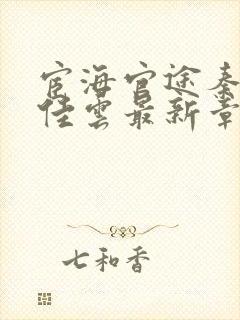 宦海官途秦
佳雲最新章
七和香